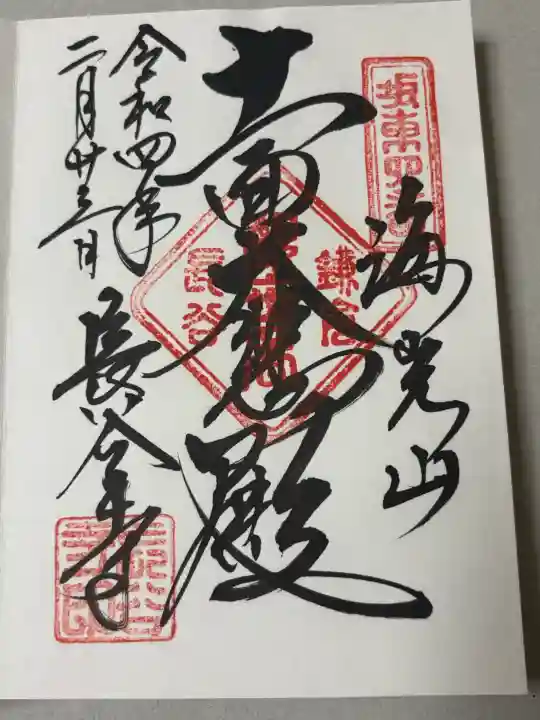 坂東四番
海光山
鎌倉
長谷
十一面大悲殿
長谷寺
令和四年
二月廿三日